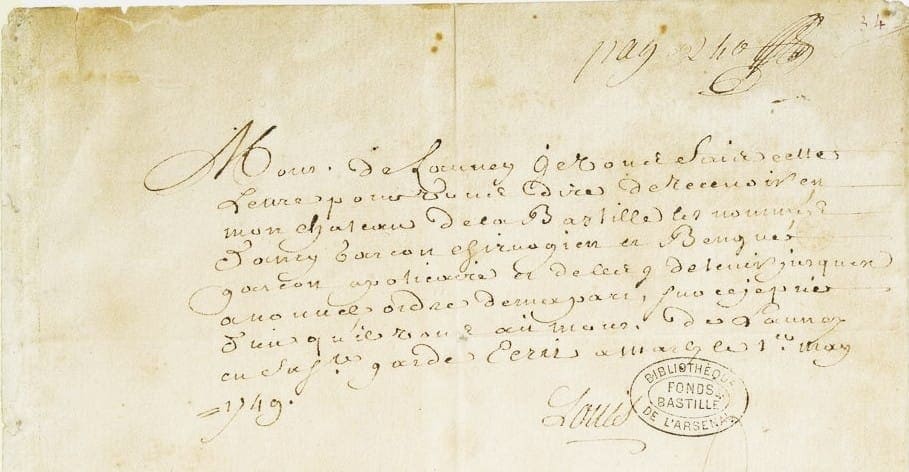 34
pay
Mons. de Launey je vous fais cette
Lettre pour vous dire de recevoir en
mon chateau de la Bastille les nommés
garcon chirurgien et
garcon apoticaire et de les y detenir jusqua
a nouvel ordre de ma part, sur ce je prie
Dieu qu'il vous ait mons. de Launey
en sa ste. garde Ecrit a Marly le 1er. may
1749.
Louis
BIBLIOTHÈQUE
FONDS
BASTILLE
DE L'ARSENAL